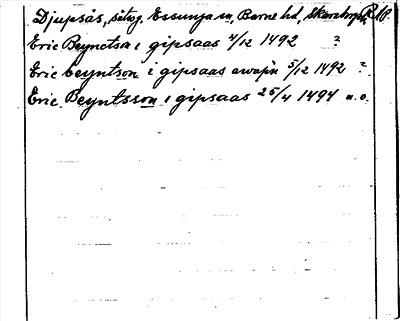 Djupsås, sätog. Essunga sn, Barne hd, Skarab. R.10.
Eric Beynctson i gipsaas 4/12 1492 ?
Eric beyntson i gipsaas awapn 5/12 1492 ?
Eric Beyntsson i gipsaas 25/4 1494 u.o.